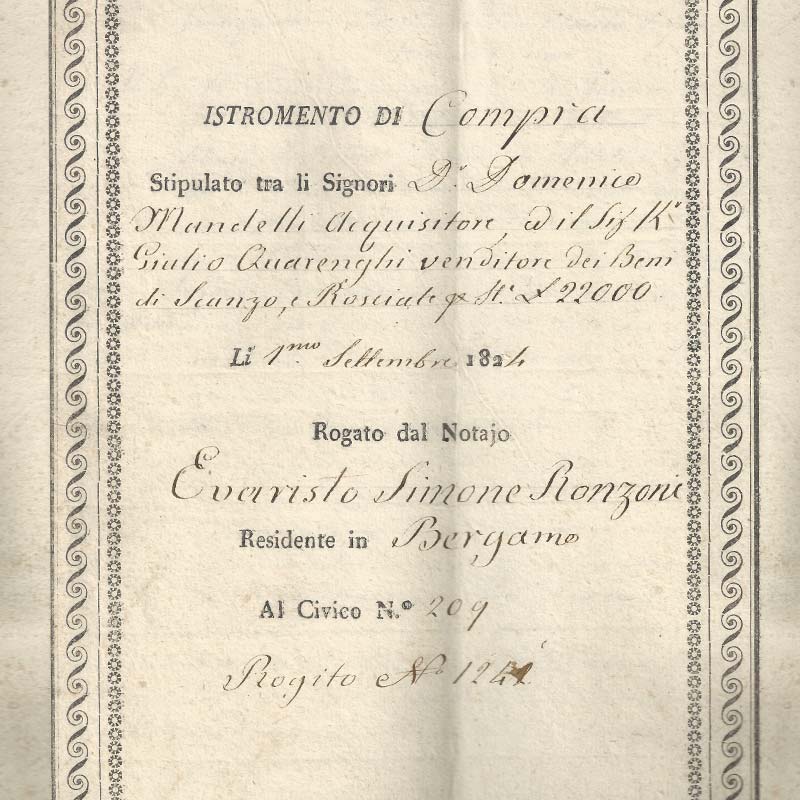 ISTROMENTO DI Compra
Stipulato tra li Signori Dr. Domenico
Mandelli Acquisitore, ed il Sig. Kr.
Giulio Quarenghi venditore dei Beni
di Scanzo, e Rosciate St. £ 22000
Li 1mo Settembre 1824
Rogato dal Notajo
Evaristo Simone Ronzoni
Residente in Bergamo
Al Civico N.º 209
Rogito No